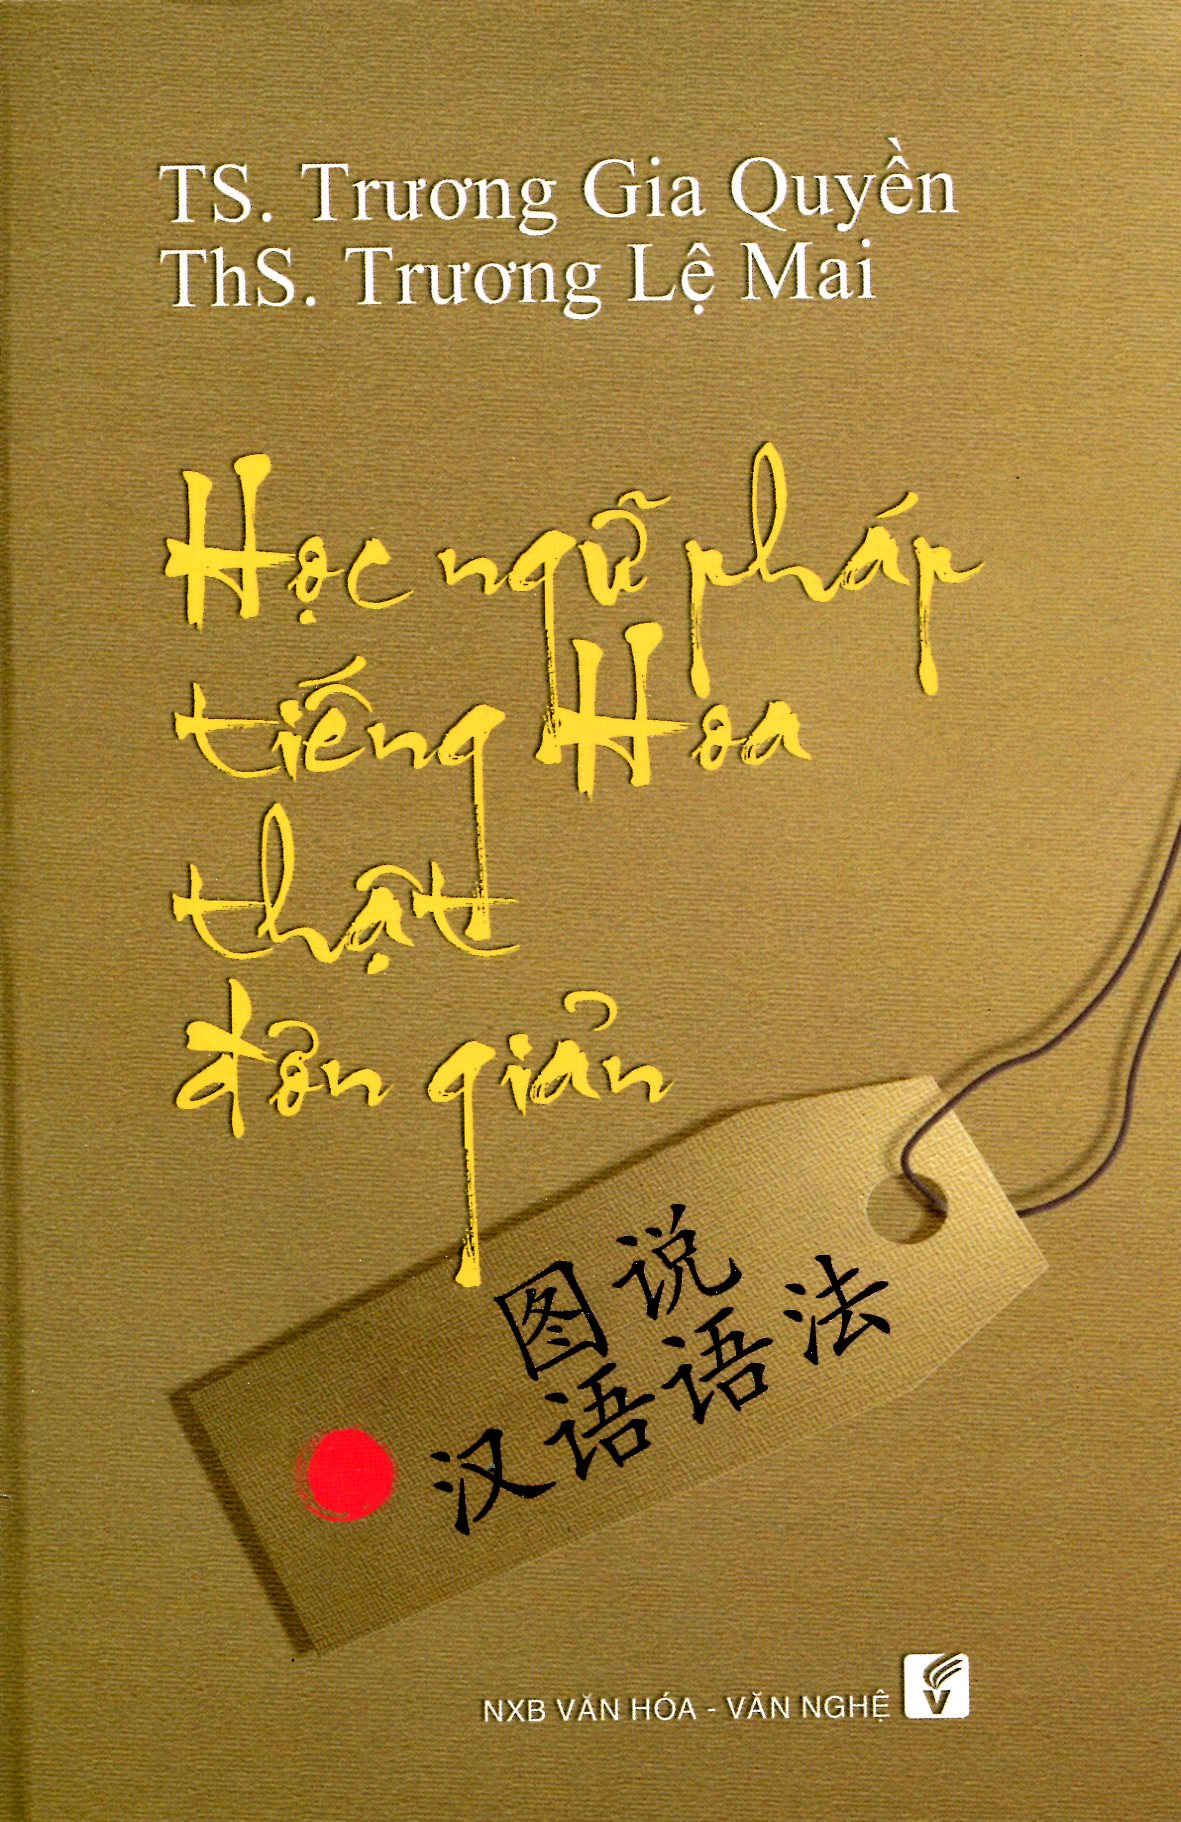 TS. Trương Gia Quyền
ThS. Trương Lệ Mai
Học ngữ pháp
tiếng Hoa
thật
đơn giản
图说
汉语语法
NXB VĂN HÓA - VĂN NGHỆ
V